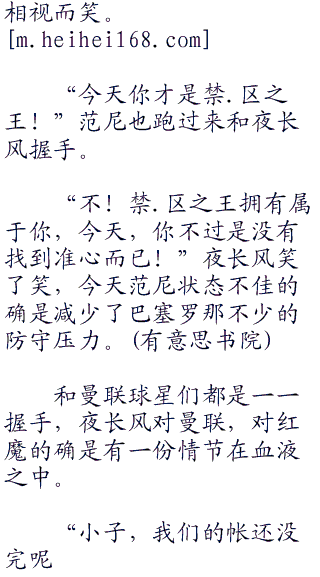 相视而笑。
[m.heihei168.com]
“今天你才是禁.区之
王！”范尼也跑过来和夜长
风握手。
“不！禁.区之王拥有属
于你，今天，你不过是没有
找到准心而已！”夜长风笑
了笑，今天范尼状态不佳的
确是减少了巴塞罗那不少的
防守压力。(有意思书院)
和曼联球星们都是一一
握手，夜长风对曼联，对红
魔的确是有一份情节在血液
之中。
“小子，我们的帐还没
完呢